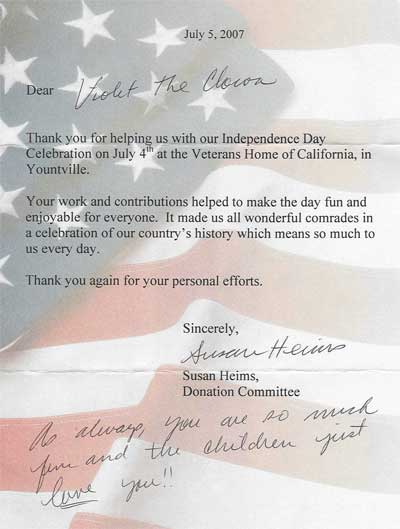 July 5, 2007
Dear Violet the Clown
Thank you for helping us with our Independence Day
Celebration on July 4th at the Veterans Home of California, in
Yountville.
Your work and contributions helped to make the day fun and
enjoyable for everyone. It made us all wonderful comrades in
a celebration of our country's history which means so much to
us every day.
Thank you again for your personal efforts.
Sincerely,
Susan Heims
Susan Heims,
Donation Committee
As always, you are so much
fun and the children just
love you!!